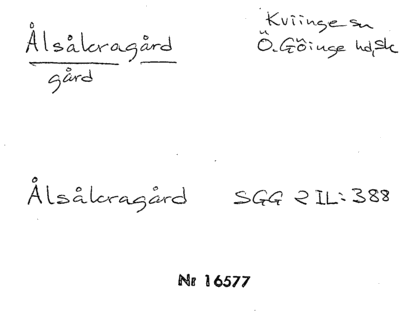 Ålsåkragård
gård
Kviinge sn
Ö. Göinge hd, Sk
Ålsåkragård SGG 2 IL: 388
Nr 16577